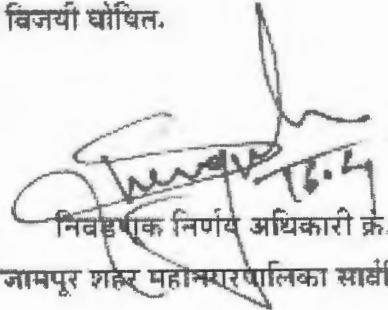 विजयी घोषित.
निवडणूक निर्णय अधिकारी क्रं.
जामपूर शहर महानगरपालिका सार्व